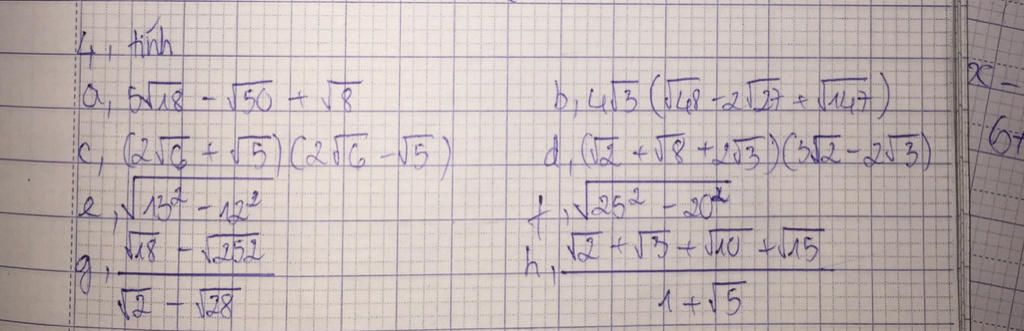 4, tính
a, 5√18 - √50 + √8 b, 4√3 (√48 - 2√27 + √147)
c, (2√6 + √5)(2√6 - √5) d, (√2 + √8 + 2√3)(3√2 - 2√3)
e, √(13² - 12²) f, √(25² - 20²)
g, (√18 - √252)/(√2 - √28) h, (√2 + √3 + √10 + √15)/(1 + √5)
x -